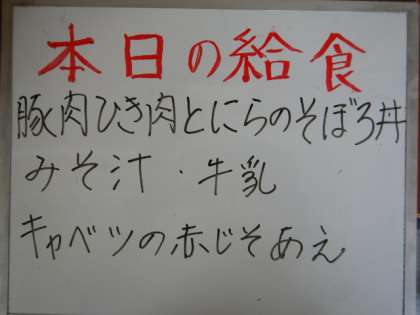 本日の給食
豚肉ひき肉とにらのそぼろ丼
みそ汁・牛乳
キャベツの赤じそあえ